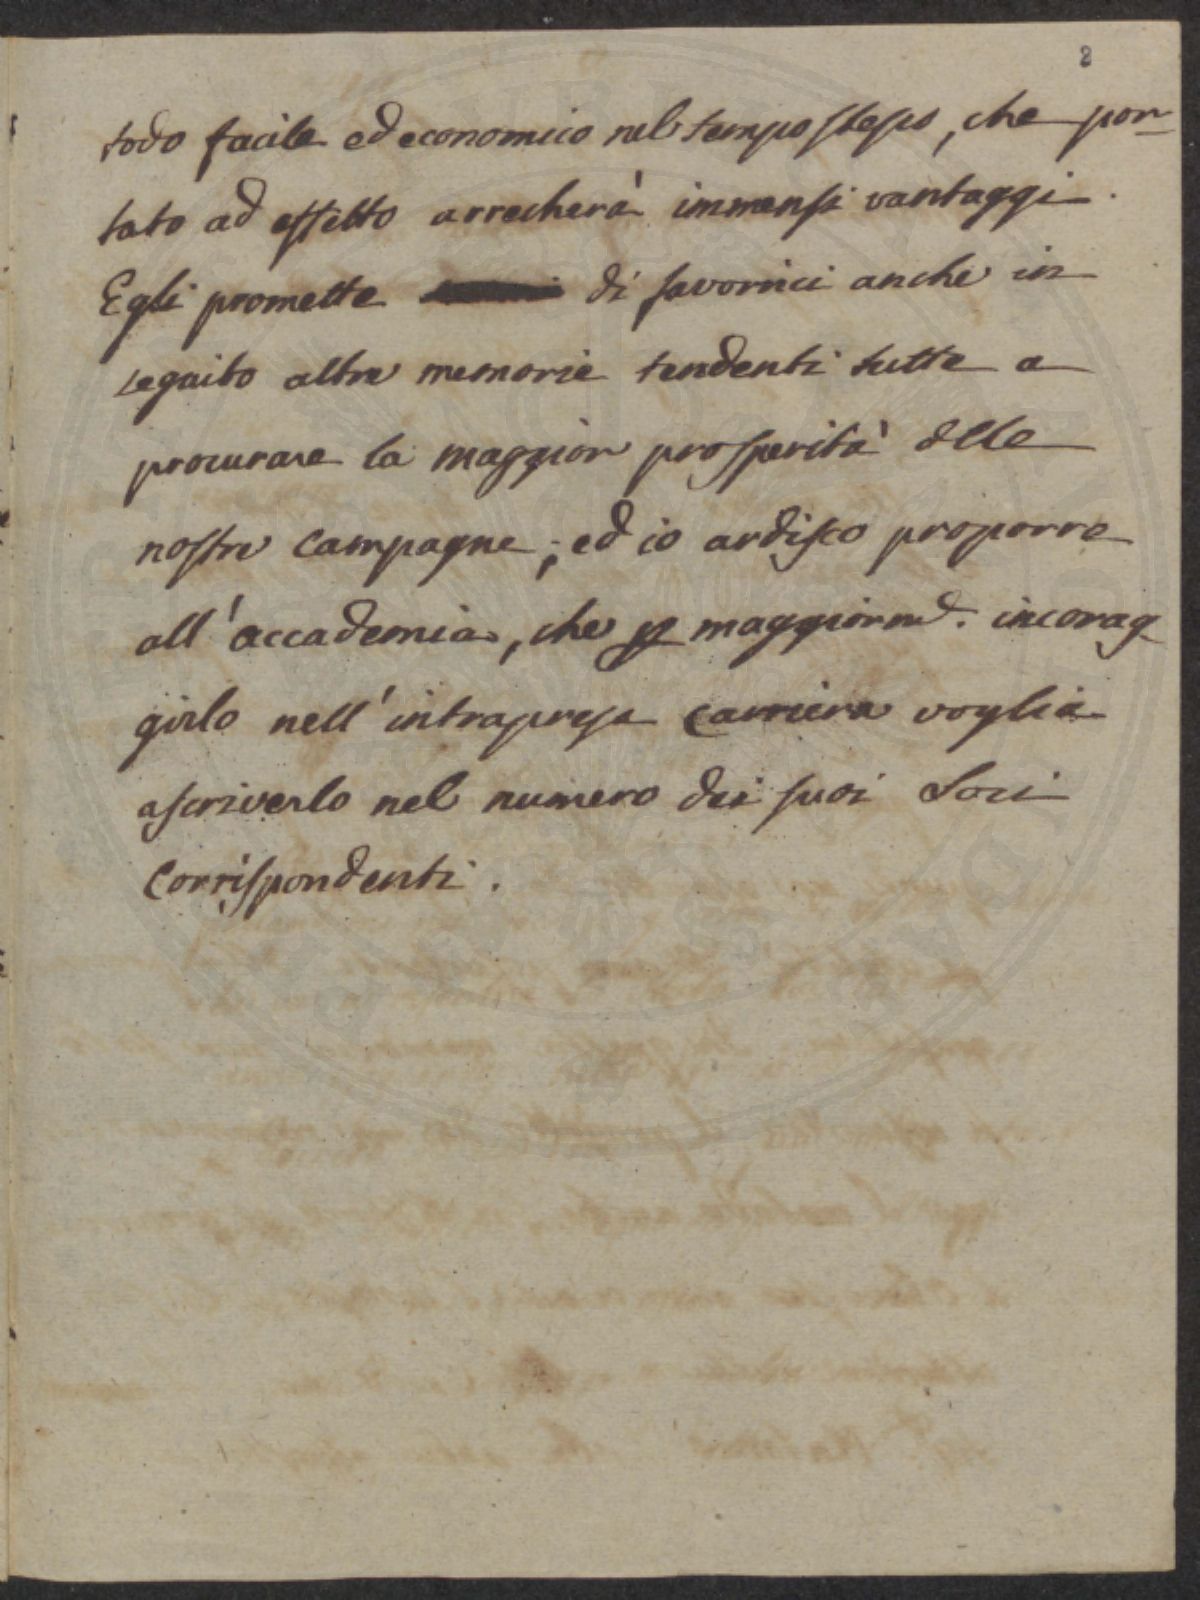 2
todo facile ed economico nel tempo stesso, che por-
tato ad effetto arrecherà immensi vantaggi.
Egli promette di favorirci anche in
seguito altre memorie tendenti tutte a
procurare la maggior prosperità delle
nostre Campagne; ed io ardisco proporre
all'accademia, che incorag
girlo nell'intrapresa carriera voglia
ascriverlo nel numero dei suoi Soci
Corrispondenti.